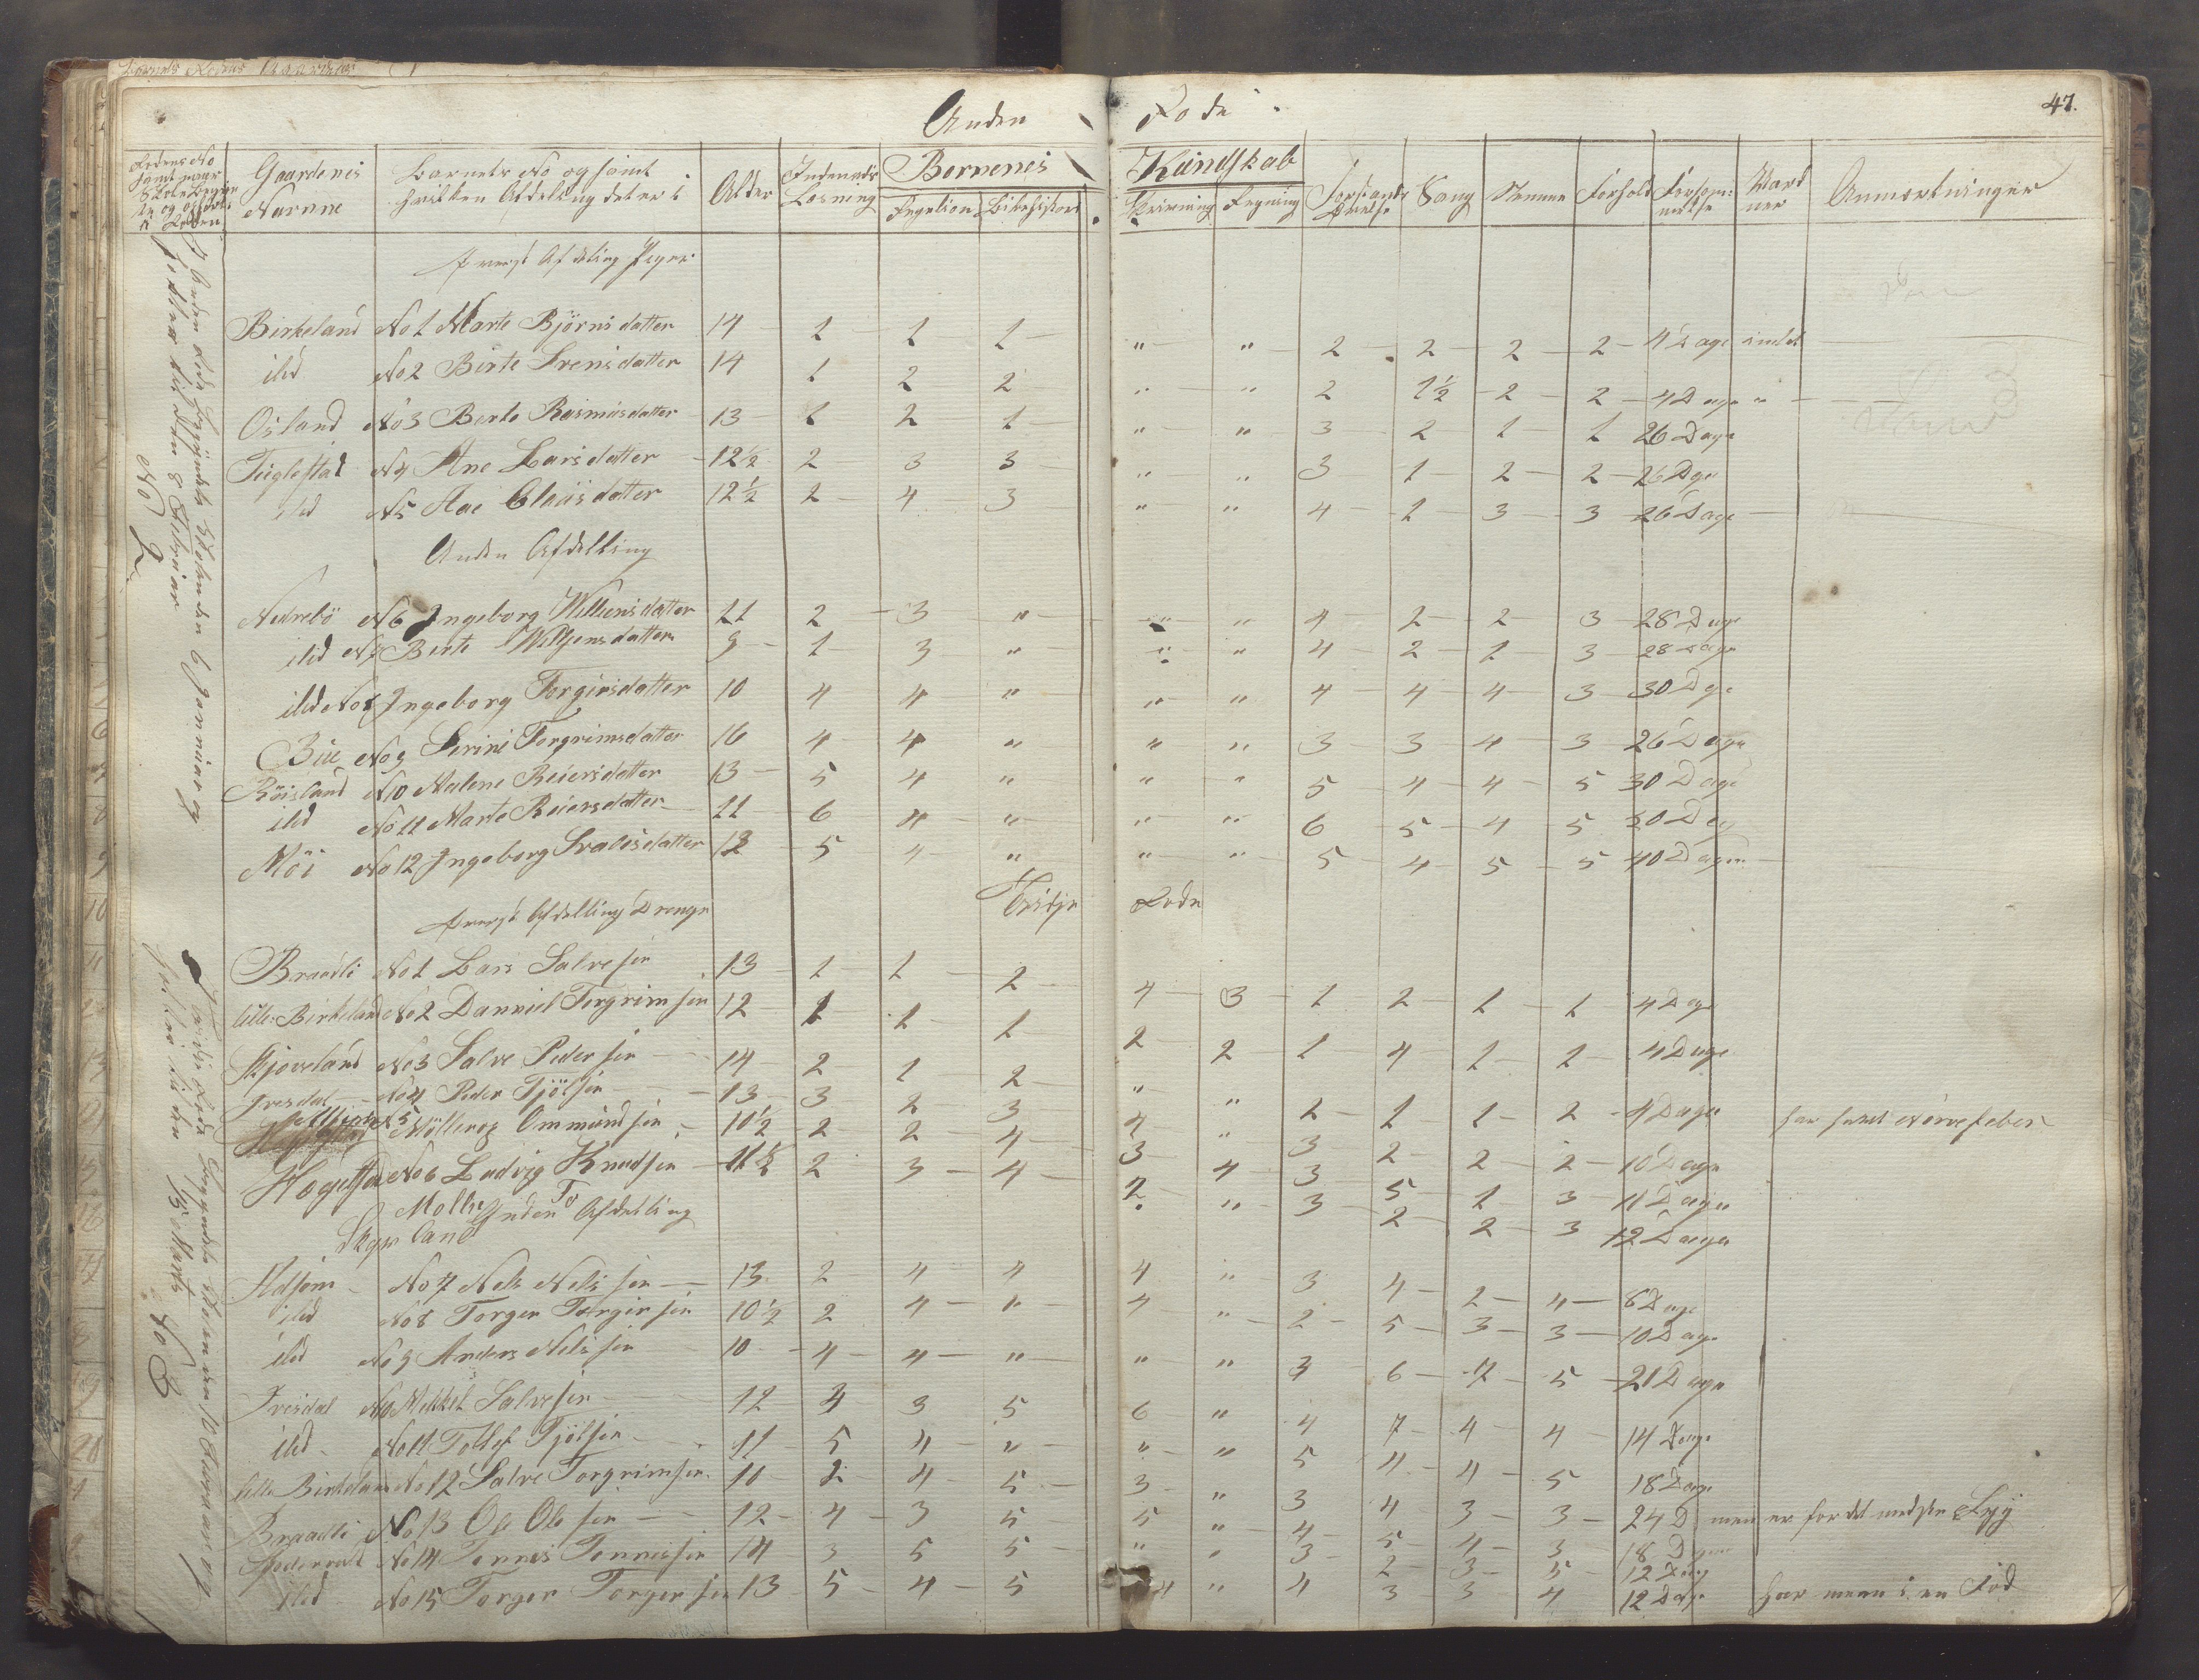 Anden Rode
47.
Gaardenes Navnne
Barnets No og samt hvilken Afdeling det er i
Alder
Indenads Læsning
Børnenes Kundskab
Religion
Bibelhistori
Skrivning
Regning
Forstands Øvelse
Sang
Nemme
Forhold
Forsømmelse
Anmærkninger
øverst Afdeling Piger
Birkeland No 1 Marte Bjørnsdatter 14 1 1 1 " " 2 2 2 2 4 Dage
ild No 2 Birte Svensdatter 14 1 2 2 " " 2 1½ 2 2 4 Dage "
Osland No 3 Berte Rasmusdatter 13 1 2 1 " " 3 2 1 1 26 Dage
Tuglestad N 4 Ane Larsdatter 12½ 2 3 3 " " 3 1 2 2 26 Dge
ild N 5 Ane Clausdatter 12½ 2 4 3 " " 4 1 3 3 26 Dage
Anden Afdelling
Nedrebö N 6 Ingeborg Willumsdatter 11 2 3 " " " 4 2 2 3 28 Dage
ild N 7 Birte Willumsdatter 9 1 3 " " " 4 2 1 3 28 Dage
ild No 8 Ingeborg Torgirsdatter 10 4 4 " " " 4 4 4 3 30 Dge
Bue No 9 Serine Torgrimsdatter 16 4 4 " " " 3 3 4 3 26 Dage
Röisland N 10 Malene Reiersdatter 13 5 4 " " " 5 4 4 5 30 Dage
ild No 11 Marte Reiersdatter 11 6 4 " " " 6 5 4 5 Dag
Möi No 12 Ingeborg Svalesdatter 12 5 4 " " " 5 4 5 5 40 Dage
I Anden Rode begyndte Skolen den 6 Januiar og holtes til den 8 Februar
No 2
Tredje Rode
øverst Afdelling Drenge
Braadli No 1 Lars Salvesen 13 1 1 2 4 3 1 2 1 1 4 Dage
lille Birkeland No 2 Danniel Torgrimsen 12 1 1 1 2 2 1 4 1 2 4 Dage
Skjoveland No 3 Salve Pedersen 14 2 1 2 " " 2 1 1 2 4 Dage har havt Nervefeber
Ivesdal No 4 Peder Tjölsen 13 3 2 3 4 " 3 2 2 2 10 Dage
N 5 Ommundsen 10½ 2 2 4 3 4 3 5 1 3 11 Dage
Hogestad No 6 Ludvig Knudsen 11½ 2 3 4 2 " 3 2 2 3 12 Dage
Anden Afdelling
No 7 Nels Nelssen 13 2 4 4 4 " 3 4 2 4 6 Dage
ild No 8 Torger Torgersen 10½ 2 4 " 4 " 2 5 3 3 10 Dage
ild No 9 Anders Nelssen 10 4 4 " " " 3 6 4 5 21 Dage
Ivesdal N 10 Mekkel Salvesen 12 4 3 5 6 " 4 7 4 4 14 Dage
ild No 11 Tollef Tjölsen 11 5 4 " " " 5 4 4 5 18 Dage
lille Birkeland No 12 Salve Torgrimsen 10 2 4 5 3 " 3 4 3 3 24 D men er for det medste Syg
Braadli No 13 Ole Olesen 12 4 3 5 5 " 4 5 4 3 18 Dage
No 14 Tonnes Tonnessen 14 3 5 5 " " 3 2 3 5 12 Dag
ild No 15 Torger Torgersen 13 5 4 5 4 " 4 3 3 4 12 Dage har meen i en Fod
I Tredie Rode begyndte Skolen den 10 Februar og holtes til den 15 Marts
No 3